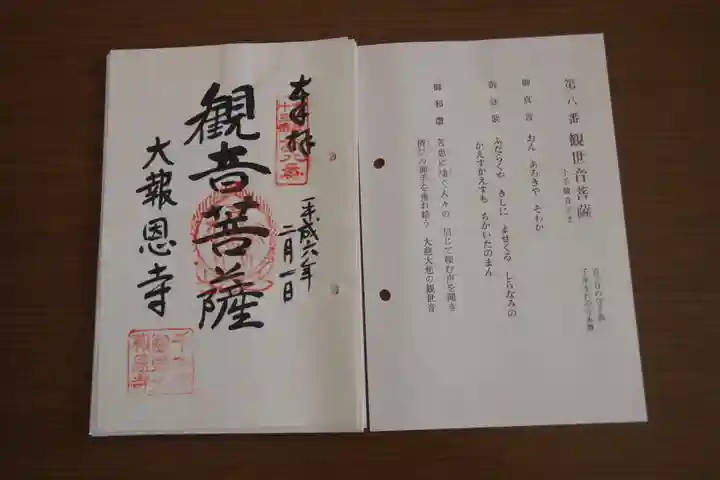 奉拝
平成六年
二月一日
観音菩薩
大報恩寺
第八番 観世音菩薩
御真言 おん あろりきや そわか
御詠歌 ふだらくや きしに よせくる しらなみの
かえすがえすも ちかいたのまん
御和讃 苦悲に嘆く人々の 信じて頼む声を聞き
済いの御手を垂れ給う 大慈大悲の観世音